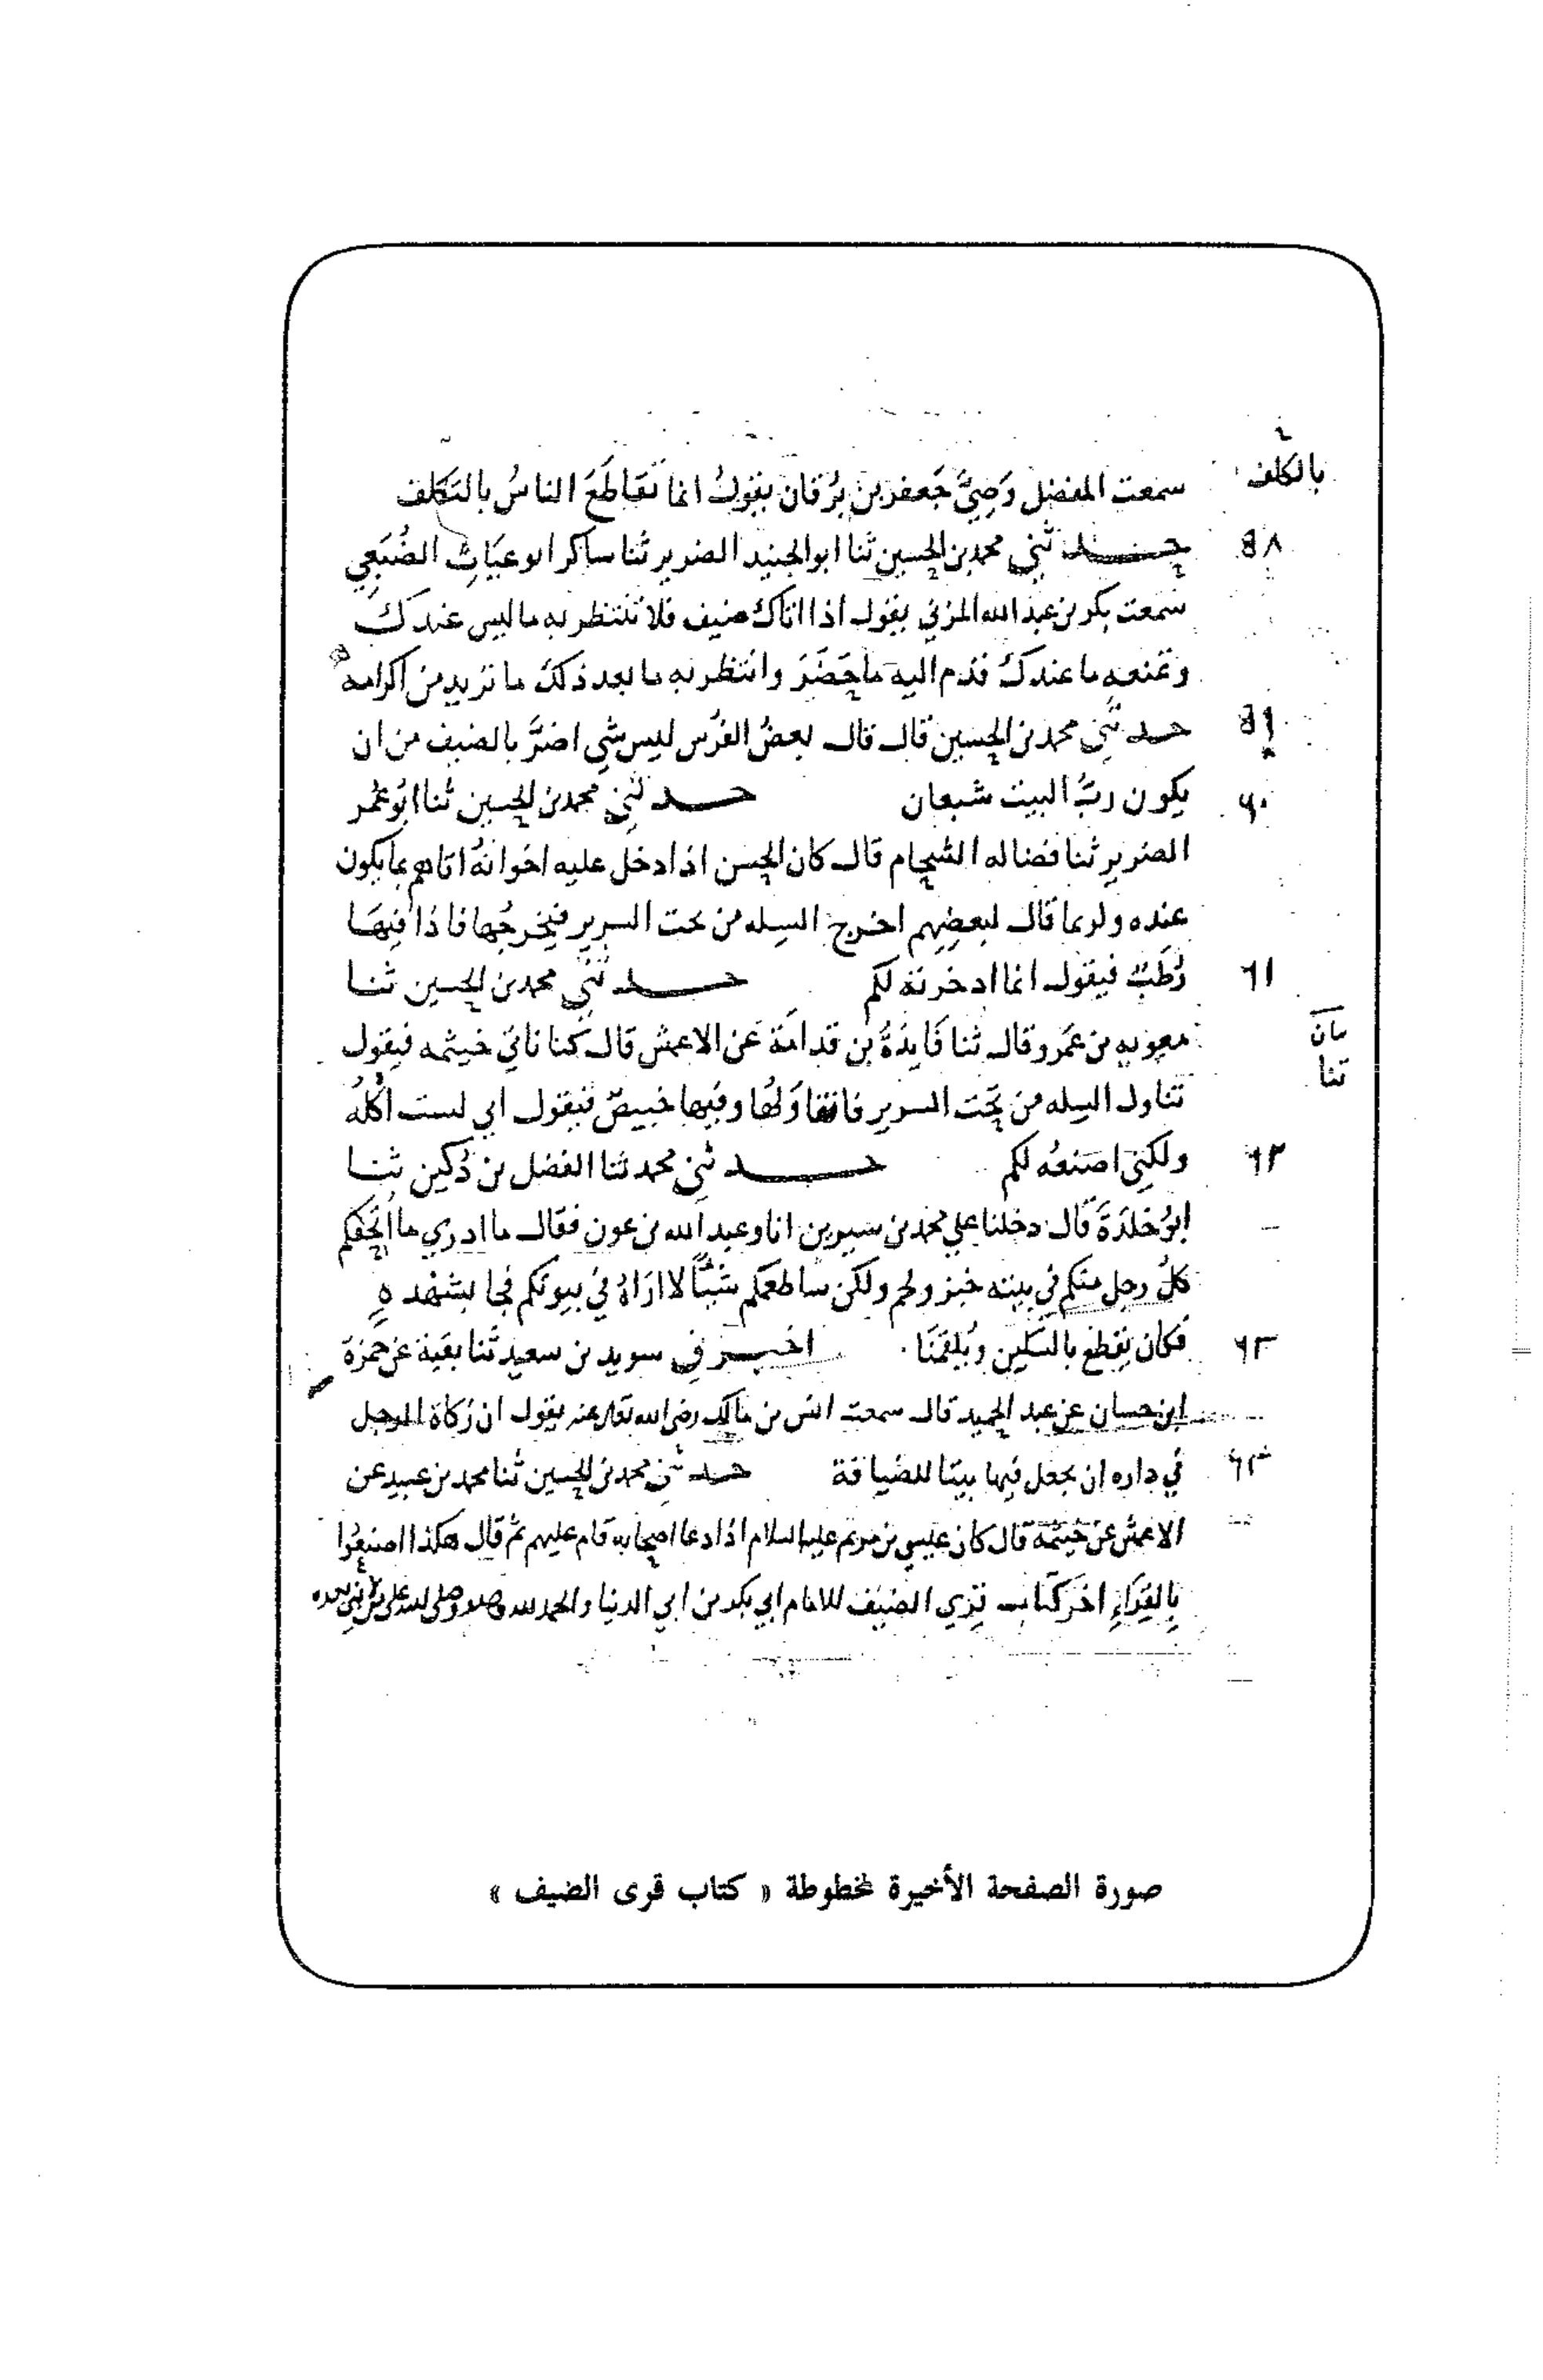 بالكلف
سمعت المفضل وَصِيَّ جَعفر بن بُرقان يقولُ انما تقَاطَعَ الناسُ بالتَكلف
٥٨ حدثني محمد بن الحسين ثنا ابو الجنيد الضرير ثنا ساكر ابو عيَاثِ الضُبَعِي
سَمعت بكر بن عبد الله المزني يقول اذا اتاك ضيف فلا تنتظر به ما ليس عندك
وتمنعه ما عندك قدم اليه ما حَضَرَ وانتظر به ما بعد ذلك ما تريد من اكرامه
٥٩ حدثني محمد بن الحسين قال قال بعضُ الفرُس ليس شي اضرَّ بالضيف من ان
يكون ربُّ البيت شبعان ٦٠ حدثني محمد بن الحسين ثنا ابُو عمر
الضرير ثنا فضاله الشحام قال كان الحسن اذا دخل عليه اخوانهُ اتاهم بما يكون
عنده ولربما قال لبعضِهم اخرج السله من تحت السرير فيخرجُها فاذا فيهَا
رُطَبٌ فيقول انما ادخرته لكم ٦١ حدثني محمد بن الحسين ثنا
معويه بن عمَرو قال ثنا زَايدَةُ بن قدامَة عَن الاعمش قال كنا ناتي خيثمه فيقول
ثنا
تناول السله من تحت السرير فاتناوَلهُا وفيها خبيصٌ فيقول اني لست اكلُه
ولكني اصنعُه لكم ٦٢ حدثني محمد ثنا الفضل بن دُكين ثنا
ابوُ خلدَةَ قال دخلنا علي محمد بن سيرين انا وعبد الله بن عون فقال ما ادري ما اُتحفكم
كلُ رجل منكم في بيته خبز ولحم ولكن ساطعمكم شيْئًا لا ارَاهُ في بيوتكم فجا بشهْدهٍ
فكان يقطع بالسكين ويُلقمنَا ٦٣ اخبرني سويد بن سعيد ثنا بقية عن حمزة
ابن حسان عن عبد الحميد قال سمعت انس بن مالك رضي الله تعالى عنه يقول ان زكاة الرجل
في داره ان يجعل فيها بيتا للضيافة ٦٤ حدثني محمد بن الحسين ثنا محمد بن عبيد عن
الاعمش عن خيثمة قال كان عيسي بن مريم عليه السلام اذا دعا اصحابه قام عليهم ثم قال هكذا اصنعُوا
بِالقِرَاءِ اخَر كتاب قري الضيف للامام ابي بكر بن ابي الدنيا والحمد لله وحده وصلى الله على من لا نبي بعده
صورة الصفحة الأخيرة لمخطوطة « كتاب قرى الضيف »